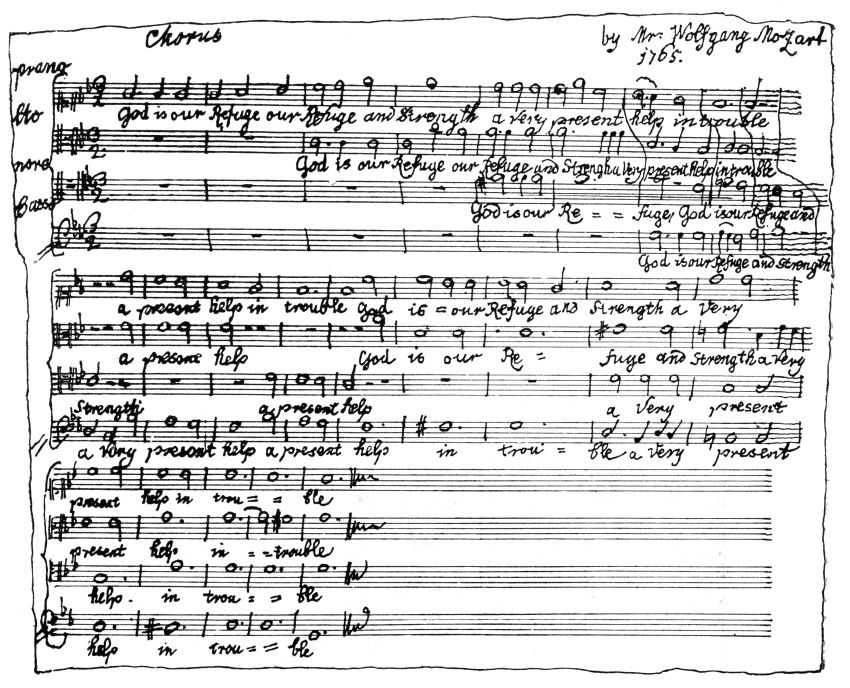 Chorus
by Mr. Wolfgang Mozart
1765.
God is our Refuge our Refuge and Strength a very present help in trouble
God is our Refuge our Refuge and Strengh a very present help in trouble
God is our Re = = fuge, God is our Refuge and
Basso
God is our Refuge and strength
a present help in trouble God is = our Refuge and Strength a Very
a present help God is our Re = fuge and Strength a very
Strength a present help a Very present
a very present help a present help in trou = ble a Very present
present help in trou = = ble
present help in = = trouble
help. in trou = = ble
help in trou = = ble